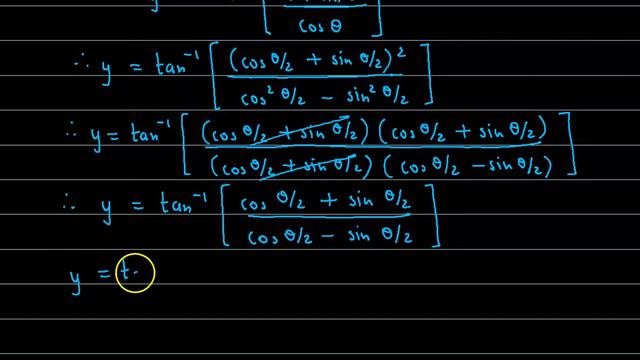 cos θ
∴ y = tan⁻¹ [ (cos θ/2 + sin θ/2)² / cos² θ/2 − sin² θ/2 ]
∴ y = tan⁻¹ [ (cos θ/2 + sin θ/2) (cos θ/2 + sin θ/2) / (cos θ/2 + sin θ/2) (cos θ/2 − sin θ/2) ]
∴ y = tan⁻¹ [ cos θ/2 + sin θ/2 / cos θ/2 − sin θ/2 ]
y = t